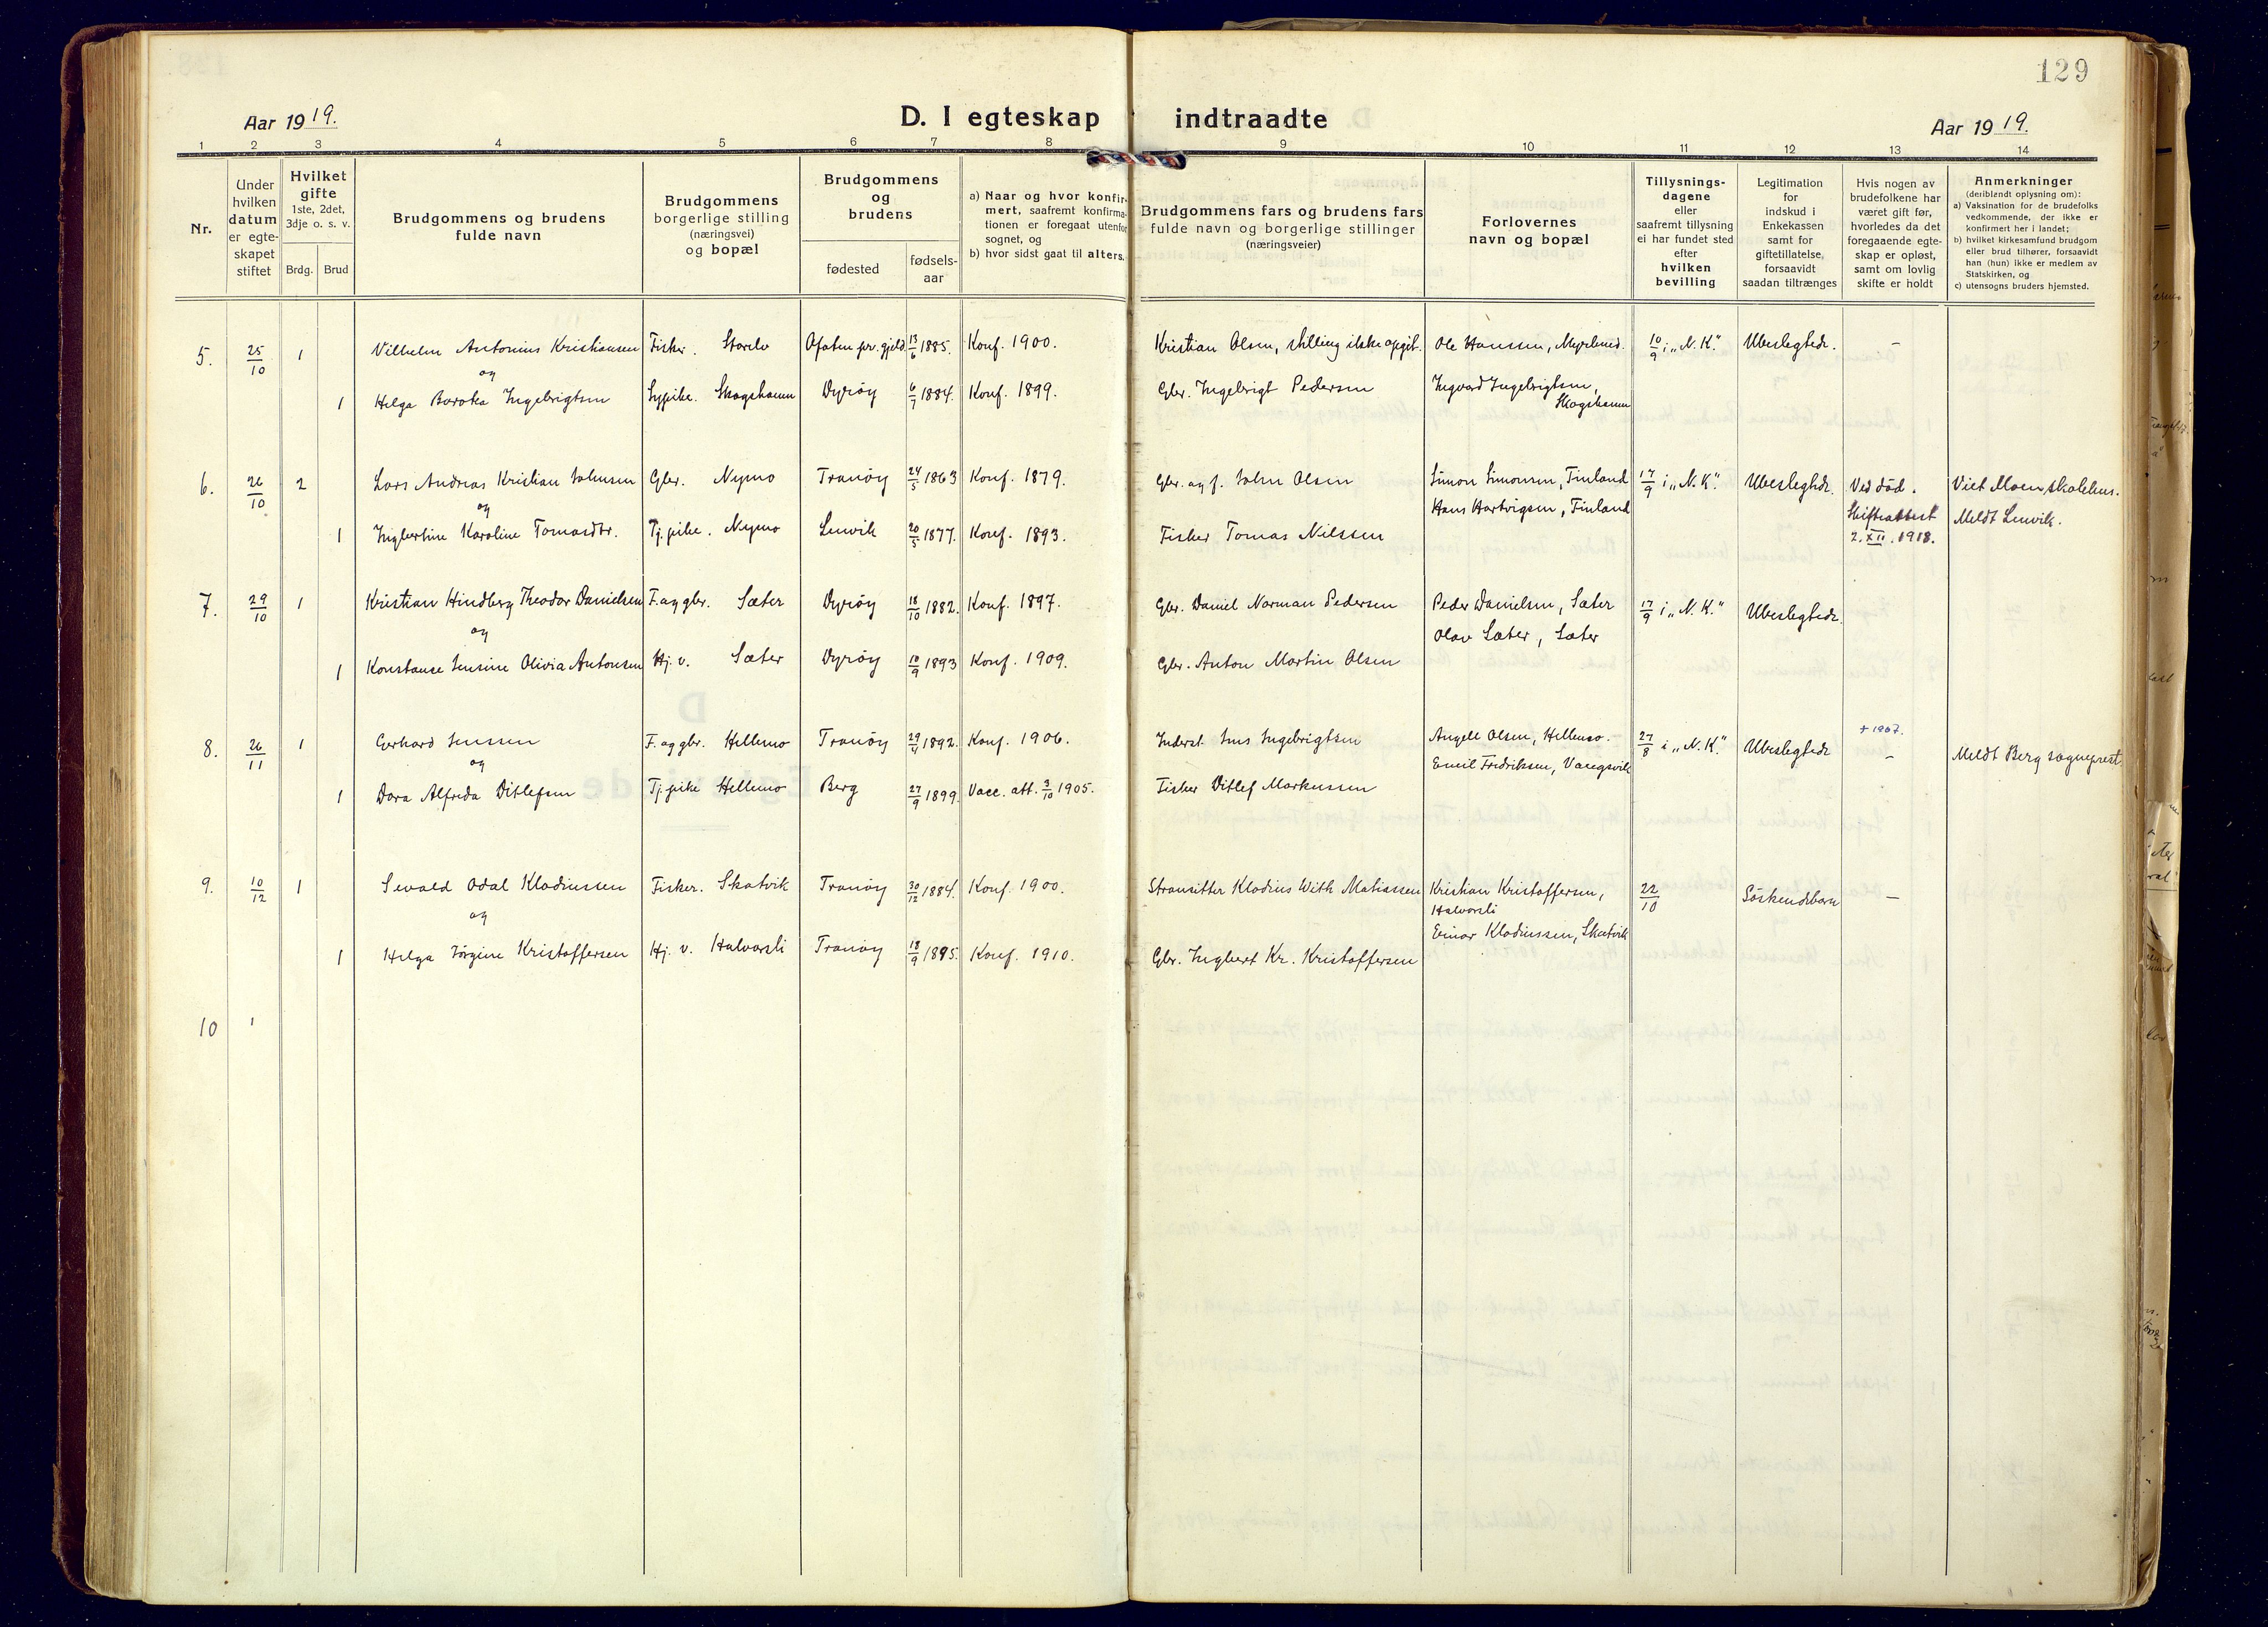 129
Aar 1919.
D. I egteskap indtraadte
Aar 1919.
1 2 3 4 5 6 7 8 9 10 11 12 13 14
Nr.
Under hvilken datum er egte-skapet stiftet
Hvilket gifte
1ste, 2det, 3dje o. s. v.
Brdg. Brud
Brudgommens og brudens fulde navn
Brudgommens borgerlige stilling (næringsvei) og bopæl
Brudgommens og brudens
fødested
fødsels-aar
a) Naar og hvor konfir-mert, saafremt konfirma-tionen er foregaat utenfor sognet, og
b) hvor sidst gaat til alters.
Brudgommens fars og brudens fars fulde navn og borgerlige stillinger (næringsveier)
Forlovernes navn og bopæl
Tillysnings-dagene eller saafremt tillysning ei har fundet sted efter hvilken bevilling
Legitimation for indskud i Enkekassen samt for giftetillatelse, forsaavidt saadan tiltrænges
Hvis nogen av brudefolkene har været gift før, hvorledes da det foregaaende egte-skap er opløst, samt om lovlig skifte er holdt
Anmerkninger
(deriblandt oplysning om):
a) Vaksination for de brudefolks vedkommende, der ikke er konfirmert her i landet;
b) hvilket kirkesamfund brudgom eller brud tilhører, forsaavidt han (hun) ikke er medlem av Statskirken, og
c) utensogns bruders hjemsted.
5. 25/10 1 Vilhelm Antonius Kristiansen Fisker. Ofoten pr.gjeld 13/6 1885. Konf. 1900. Kristian Olsen, stilling ikke opgit. Ole Hanssen, 10/9 i „N.K." Ubeslegtede. –
og
1 Helga Ingebrigtsen Sypike. Skogshamn Dyröy 6/7 1884. Konf. 1899. Gbr. Ingebrigt Pedersen Ingvard Ingebrigtsen,
Skogshamn
6. 26/10 2 Lars Andreas Kristian Johnsen Gbr. Nymo Tranöy 24/5 1863 Konf. 1879. Gbr. og f. John Olsen Simon Simonsen, Finland 17/9 i „N.K." Ubeslegtede. Ved död. Viet Moen skolehus.
og Hans Hartvigsen, Finland Skifteattest Meldt Lenvik.
1 Ingbertine Karoline Tomasdtr. Tj.pike. Nymo Lenvik 20/5 1877. Konf. 1893. Fisker Tomas Nilssen 2.XII.1918.
7. 29/10 1 Kristian Hindberg Theodor Danielsen F. og gbr. Sæter Dyröy 18/10 1882. Konf. 1897. Gbr. Daniel Norman Pedersen Peder Danielsen, Sæter 17/9 i „N.K." Ubeslegtede.
og Olav Sæter, Sæter
1 Konstanse Jensine Olivia Antonsen Hj. v. Sæter Dyröy 10/9 1893 Konf. 1909. Gbr. Anton Martin Olsen
+ 1967.
8. 26/11 1 Gerhard Jenssen F. og gbr. Hellemo Tranöy 29/4 1892. Konf. 1906. Inderst. Jens Ingebrigtsen Angell Olsen, Hellemo. 27/8 i „N.K." Ubeslegtede – Meldt Berg sogneprest
og Emil Fredriksen, Vangsvik
1 Dora Alfreda Ditlefsen Tj.pike Hellemo Berg 27/9 1899. Vacc. att. 3/10 1905. Fisker Ditlef Markussen
9. 10/12 1 Sevald Odal Klodiussen Fisker. Skatvik Tranöy 30/12 1884. Konf. 1900. Stransitter Klodius With Matiassen Kristian Kristoffersen, 22/10 Söskendebarn –
Halvorsli
og Einar Klodiussen, Skatvik
1 Helga Jörgine Kristoffersen Hj. v. Halvorsli Tranöy 18/9 1895. Konf. 1910. Gbr. Ingbert Kr. Kristoffersen
10